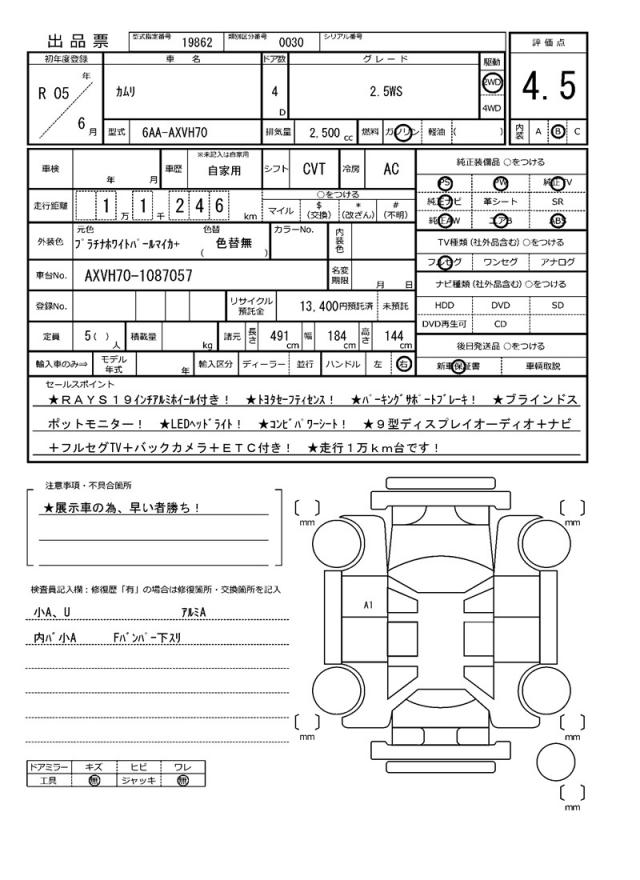 出品票 型式指定番号 19862 類別区分番号 0030 シリアル番号
評価点
4.5
内装 A B C
初年度登録 車名 ドア数 グレード 駆動
R 05 年 6 月
カムリ 4 D 2.5WS 2WD 4WD
型式 6AA-AXVH70 排気量 2,500 cc 燃料 ガソリン 軽油 ( )
車検 年 月 車歴 ※未記入は自家用 自家用 シフト CVT 冷房 AC
走行距離 1 万 1 千 2 4 6 km
○をつける
マイル $(交換) *(改ざん) #(不明)
外装色 元色 プラチナホワイトパールマイカ+ 色替 ( 色替無 ) カラーNo. 内装色
車台No. AXVH70-1087057 名変期限 月 日
登録No. リサイクル預託金 13,400円預託済 未預託
定員 5( ) 人 積載量 kg 諸元 長さ 491 cm 幅 184 cm 高さ 144 cm
輸入車のみ⇒ モデル年式 年 輸入区分 ディーラー 並行 ハンドル 左 右
純正装備品 ○をつける
PS PW 純正TV
純正ナビ 革シート SR
純正AW エアB ABS
TV種類(社外品含む)○をつける
フルセグ ワンセグ アナログ
ナビ種類(社外品含む)○をつける
HDD DVD SD
DVD再生可 CD
後日発送品 ○をつける
新車保証書 車輌取説
セールスポイント
★RAYS19インチアルミホイール付き! ★トヨタセーフティセンス! ★パーキングサポートブレーキ! ★ブラインドス
ポットモニター! ★LEDヘッドライト! ★コンビパワーシート! ★9型ディスプレイオーディオ+ナビ
+フルセグTV+バックカメラ+ETC付き! ★走行1万km台です!
注意事項・不具合箇所
★展示車の為、早い者勝ち!
検査員記入欄:修復歴「有」の場合は修復箇所・交換箇所を記入
小A、U アルミA
内パ小A Fバンパー下スリ
ドアミラー キズ ヒビ ワレ
工具 無 ジャッキ 無
[ ] mm
[ ] mm
A1
[ ] mm
[ ] mm
[ ] mm